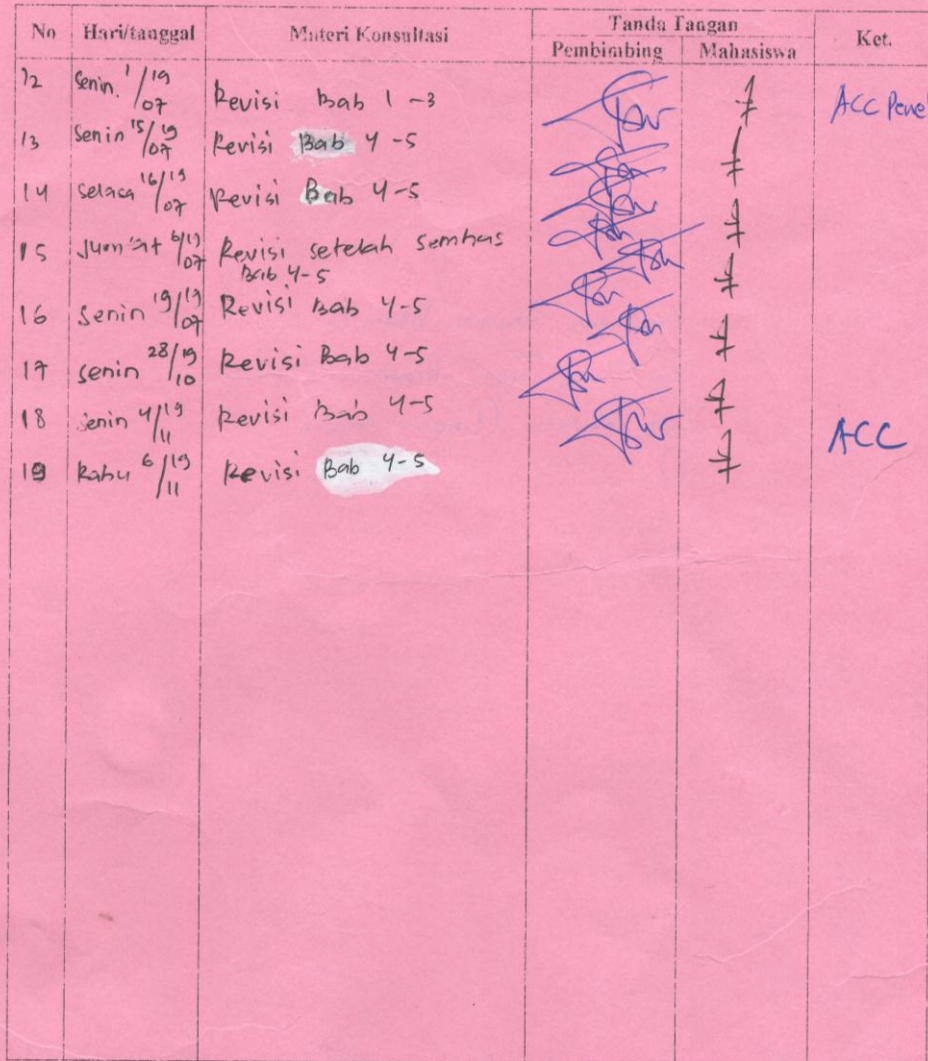 No Hari/tanggal Materi Konsultasi Tanda Tangan Ket.
Pembimbing Mahasiswa
12 Senin 1/19 07 Revisi Bab 1-3 ACC Pene
13 Senin 15/19 07 Revisi Bab 4-5
14 Selasa 16/19 07 Revisi Bab 4-5
15 Jum'at 6/19 07 Revisi setelah Semhas
Bab 4-5
16 Senin 19/19 07 Revisi Bab 4-5
17 Senin 28/19 10 Revisi Bab 4-5
18 Senin 4/19 11 Revisi Bab 4-5
19 Rabu 6/19 11 Revisi Bab 4-5 ACC